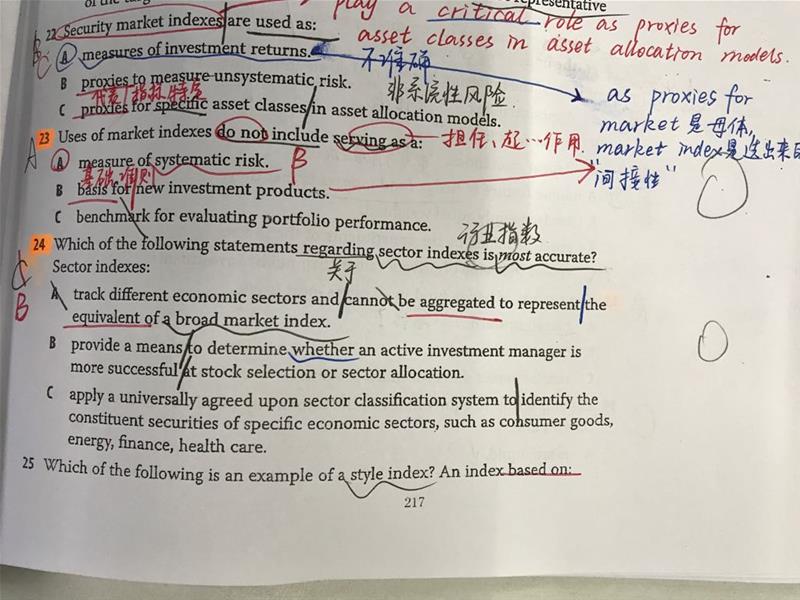 play a critical role as proxies for
asset classes in asset allocation models.
22 Security market indexes are used as:
C
A measures of investment returns.
不准确
B proxies to measure unsystematic risk.
非系统性风险
代表 指标
C proxies for specific asset classes in asset allocation models.
as proxies for
market 是母体,
market index是
"间接性"
23 Uses of market indexes do not include serving as a:
担任、起…作用
A
A measure of systematic risk.
B
基础、准则
B basis for new investment products.
C benchmark for evaluating portfolio performance.
行业指数
24 Which of the following statements regarding sector indexes is most accurate?
关于
Sector indexes:
C
B
A track different economic sectors and cannot be aggregated to represent the
equivalent of a broad market index.
B provide a means to determine whether an active investment manager is
more successful at stock selection or sector allocation.
C apply a universally agreed upon sector classification system to identify the
constituent securities of specific economic sectors, such as consumer goods,
energy, finance, health care.
25 Which of the following is an example of a style index? An index based on:
217